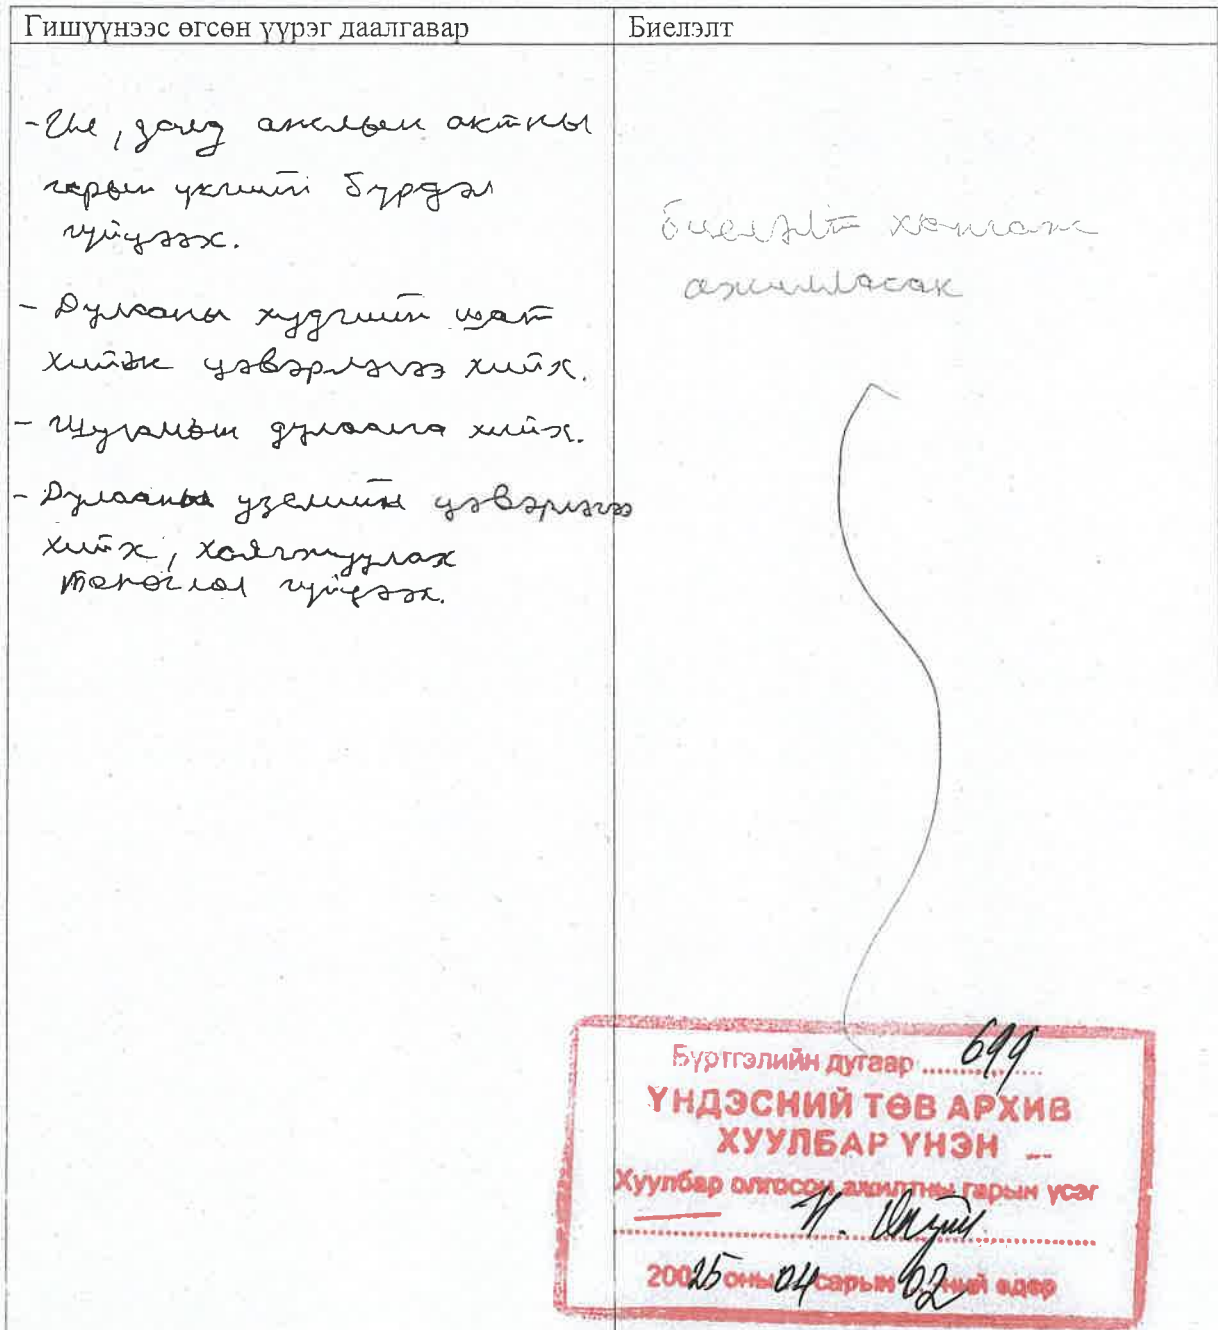 Гишүүнээс өгсөн үүрэг даалгавар
Биелэлт
- Ил, далд ажлын актны
гарын үсгийг бүрдэл
гүйцээх.
- Дулааны худгийн шат
хийж цэвэрлэгээ хийх.
- Шугамын дулаалга хийх.
- Дулааны узелийн цэвэрлэгээ
хийх, хаягжуулах
тоноглол гүйцээх.
биелэлт хангаж
ажилласан
Бүртгэлийн дугаар 699
ҮНДЭСНИЙ ТӨВ АРХИВ
ХУУЛБАР ҮНЭН
Хуулбар олгосон ажилтны гарын үсэг
20025 оны 04 сарын 02 ний өдөр